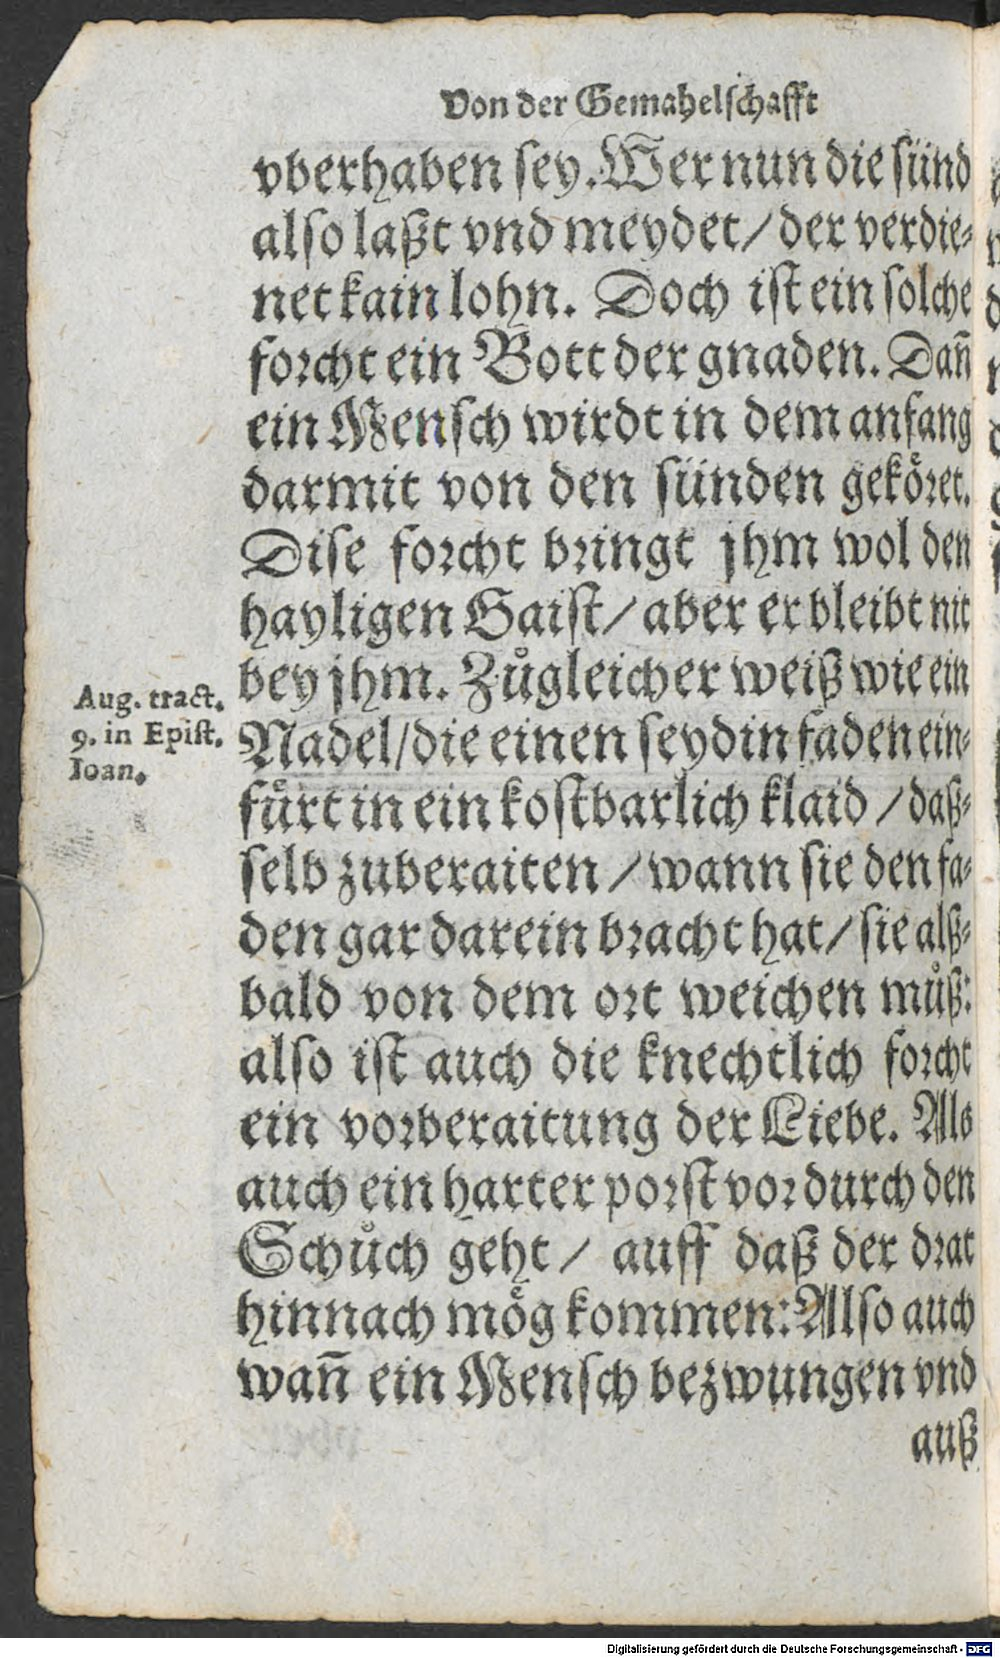 Von der Gemahelschafft
vberhaben sey. Wer nun die sünd
also laßt vnd meydet / der verdie⸗
net kain lohn. Doch ist ein solche
forcht ein Bott der gnaden. Dañ
ein Mensch wirdt in dem anfang
darmit von den sünden geköret.
Dise forcht bringt jhm wol den
hayligen Gaist / aber er bleibt nit
bey jhm. Zůgleicher weiß wie ein
Nadel / die einen seydin faden ein⸗
fürt in ein kostbarlich klaid / daß⸗
selb zuberaiten / wann sie den fa⸗
den gar darein bracht hat / sie alß⸗
bald von dem ort weichen můß:
also ist auch die knechtlich forcht
ein vorberaitung der Liebe. Als
auch ein harter porst vor durch den
Schůch geht / auff daß der drat
hinnach mög kommen: Also auch
wañ ein Mensch bezwungen vnd
auß
Aug. tract.
9. in Epist.
Ioan.
Digitalisierung gefördert durch die Deutsche Forschungsgemeinschaft - DFG